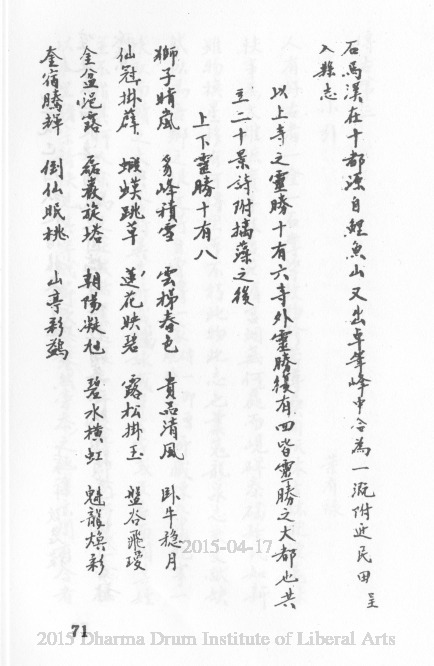 石馬溪在十都源自鯉魚山又出卓筆峰中合為一派附近民田呈
入縣志
以上寺之靈勝十有六寺外靈勝復有四皆靈勝之大都也共
主二十景詩附摛藻之後
上下靈勝十有八
獅子晴嵐 多峰積雪 雲梯春色 貴品清風 臥牛穩月
仙冠掛薜 蝦蟆跳草 蓮花映碧 露松掛玉 盤谷飛璦
金盆浥露 磊巖旋塔 朝陽凝 碧水橫虹 魁龍煥彩
奎宿騰輝 倒仙眠桃 山亭彩鷁
71
2015-04-17
2015 Dharma Drum Institute of Liberal Arts